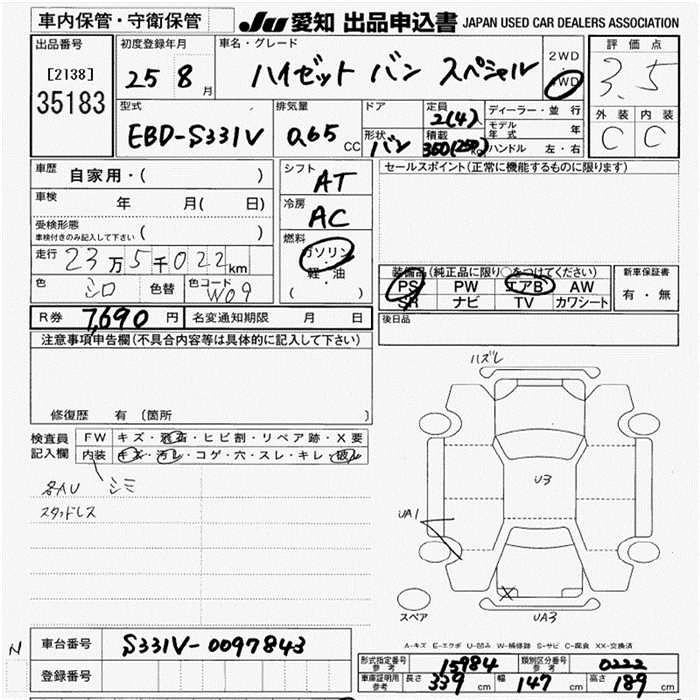 車内保管・守衛保管 JU 愛知 出品申込書 JAPAN USED CAR DEALERS ASSOCIATION
出品番号 初度登録年月 車名・グレード 評価点
[2138] 25 8 月 ハイゼット バン スペシャル 2WD・4WD 3.5
35183
型式 排気量 ドア 定員 2(4) ディーラー・並行 外装 内装
EBD-S331V 0.65 CC 形状 バン 積載 350(250)kg モデル年式 年 C C
ハンドル 左・右
車歴 自家用・( ) シフト AT セールスポイント(正常に機能するものに限ります)
車検 年 月( 日) 冷房 AC
受検形態
車検付きのみ記入して下さい ( ) 燃料
走行 23万5千022km ガソリン・軽・油
( )
色 シロ 色替 色コード W09
装備品(純正品に限り○をつけてください) 新車保証書
PS PW エアB AW 有・無
SR ナビ TV カワシート
R券 7,690 円 名変通知期限 月 日 後日品
注意事項申告欄(不具合内容等は具体的に記入して下さい)
修復歴 有 (箇所 )
検査員記入欄 FW キズ・飛石・ヒビ割・リペア跡・X要
内装 キズ・汚レ・コゲ・穴・スレ・キレ・破レ
シミ
スタッドレス
ハズレ
U3
UA1
X
UA3
スペア
A-キズ E-エクボ U-凹み W-補修跡 S-サビ C-腐食 XX-交換済
N
車台番号 S331V-0097843
登録番号
形式指定番号 参考 15984 類別区分番号 参考 0222
車庫証明用 参考 長さ 339 cm 幅 147 cm 高さ 189 cm